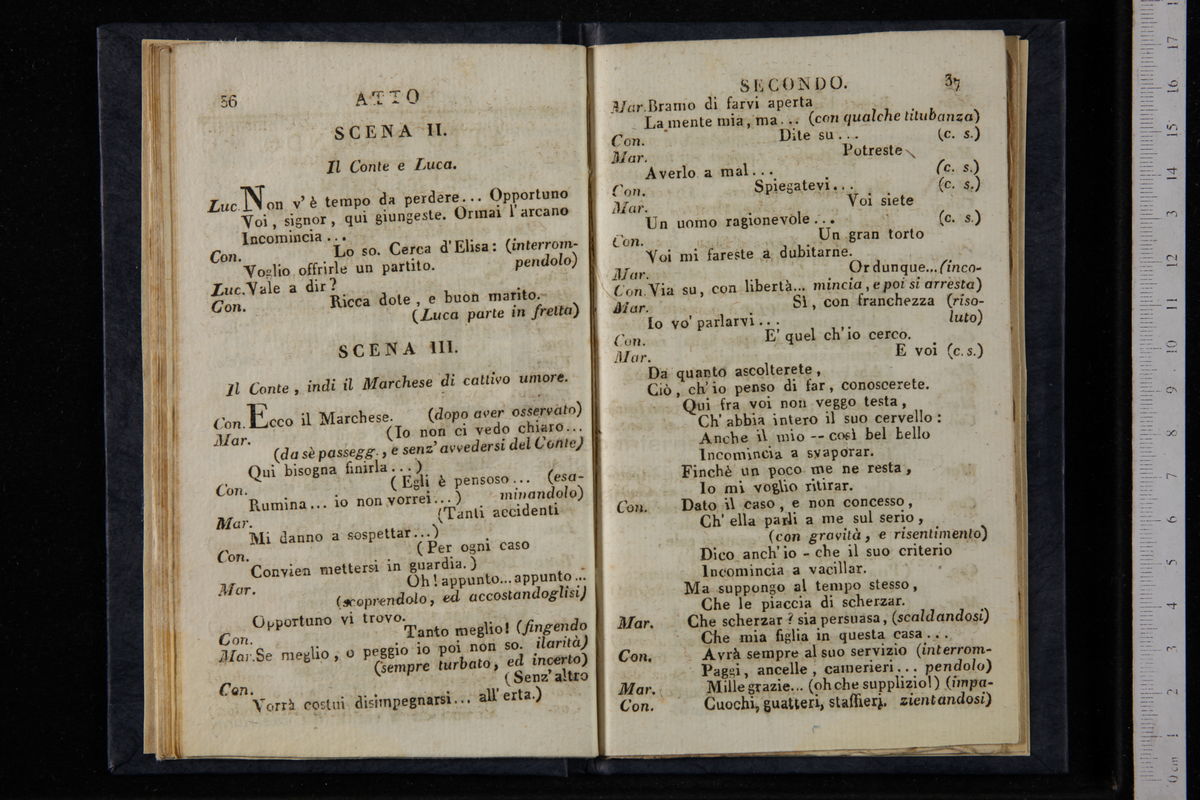 36 ATTO
SCENA II.
Il Conte e Luca.
Luc. Non v' è tempo da perdere... Opportuno
Voi, signor, qui giungeste. Ormai l'arcano
Incomincia...
Con. Lo so. Cerca d'Elisa: (interrom-
Voglio offrirle un partito. pendolo)
Luc. Vale a dir?
Con. Ricca dote, e buon marito.
(Luca parte in fretta)
SCENA III.
Il Conte, indi il Marchese di cattivo umore.
Con. Ecco il Marchese. (dopo aver osservato)
Mar. (Io non ci vedo chiaro...
(da sè passegg., e senz' avvedersi del Conte)
Qui bisogna finirla...)
Con. (Egli è pensoso... (esa-
Rumina... io non vorrei...) minandolo)
Mar. (Tanti accidenti
Mi danno a sospettar...)
Con. (Per ogni caso
Convien mettersi in guardia.)
Mar. Oh! appunto... appunto...
(scoprendolo, ed accostandoglisi)
Opportuno vi trovo.
Con. Tanto meglio! (fingendo
Mar. Se meglio, o peggio io poi non so. ilarità)
(sempre turbato, ed incerto)
Con. (Senz' altro
Vorrà costui disimpegnarsi... all' erta.)
SECONDO. 37
Mar. Bramo di farvi aperta
La mente mia, ma... (con qualche titubanza)
Con. Dite su... (c. s.)
Mar. Potreste
Averlo a mal... (c. s.)
Con. Spiegatevi... (c. s.)
Mar. Voi siete
Un uomo ragionevole... (c. s.)
Con. Un gran torto
Voi mi fareste a dubitarne.
Mar. Or dunque... (inco-
Con. Via su, con libertà... mincia, e poi si arresta)
Mar. Sì, con franchezza (riso-
Io vo' parlarvi... luto)
Con. E' quel ch' io cerco.
Mar. E voi (c. s.)
Da quanto ascolterete,
Ciò, ch' io penso di far, conoscerete.
Qui fra voi non veggo testa,
Ch' abbia intero il suo cervello:
Anche il mio -- così bel bello
Incomincia a svaporar.
Finchè un poco me ne resta,
Io mi voglio ritirar.
Con. Dato il caso, e non concesso,
Ch' ella parli a me sul serio,
(con gravità, e risentimento)
Dico anch' io - che il suo criterio
Incomincia a vacillar.
Ma suppongo al tempo stesso,
Che le piaccia di scherzar.
Mar. Che scherzar? sia persuasa, (scaldandosi)
Che mia figlia in questa casa...
Con. Avrà sempre al suo servizio (interrom-
Paggi, ancelle, camerieri... pendolo)
Mar. Mille grazie... (oh che supplizio!) (impa-
Con. Cuochi, guatteri, staffieri. zientandosi)
0 cm 1 2 3 4 5 6 7 8 9 10 11 12 13 14 15 16 17